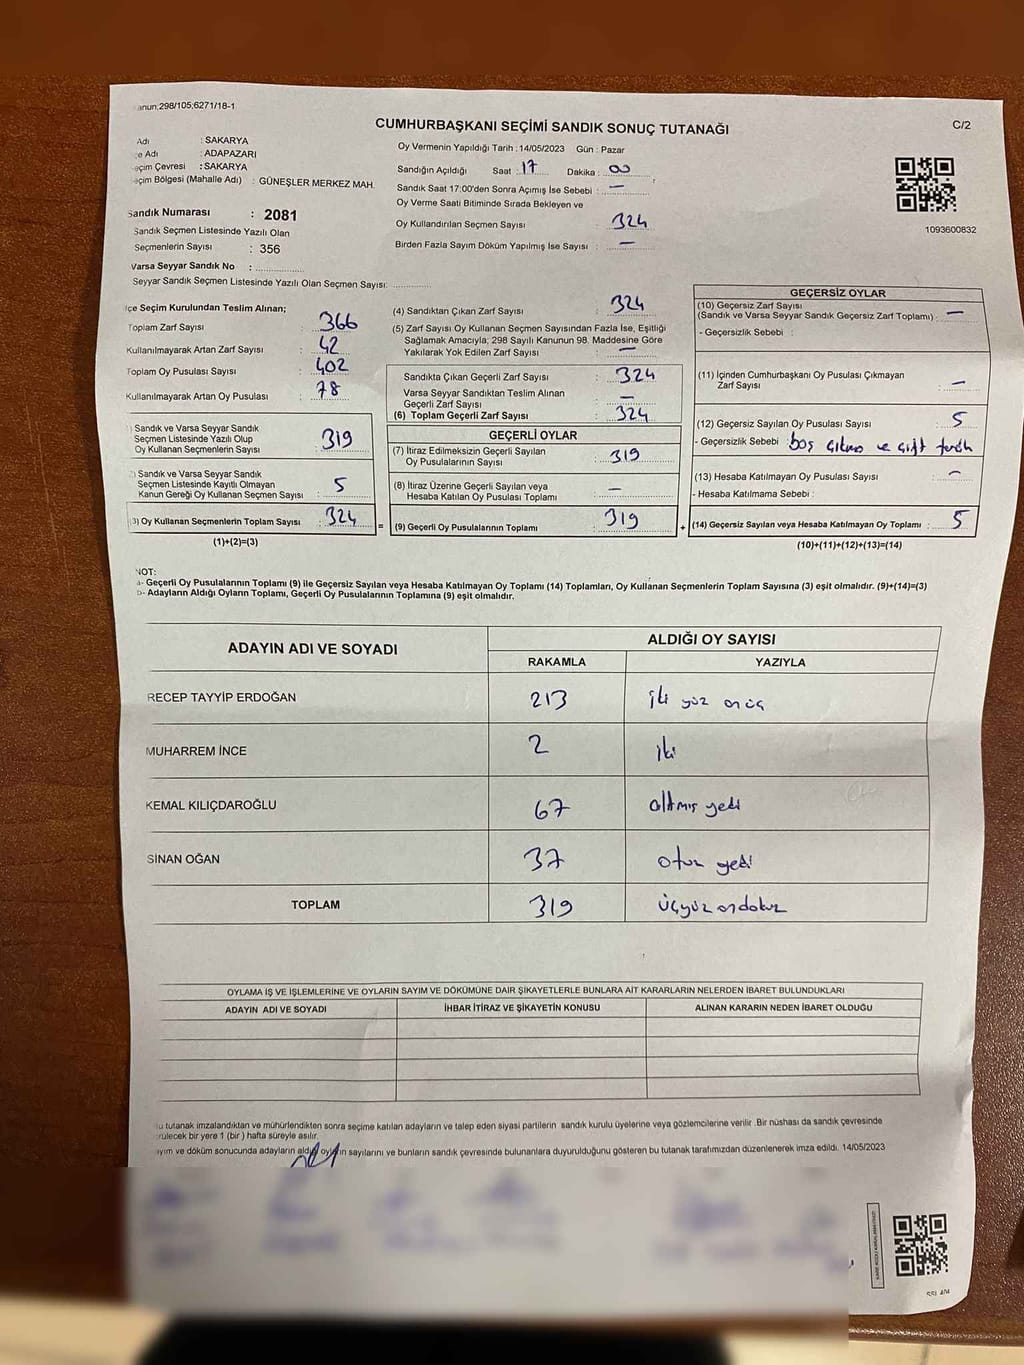 anun;298/105;6271/18-1
C/2
CUMHURBAŞKANI SEÇİMİ SANDIK SONUÇ TUTANAĞI
Adı : SAKARYA
e Adı : ADAPAZARI
eçim Çevresi : SAKARYA
eçim Bölgesi (Mahalle Adı) : GÜNEŞLER MERKEZ MAH.
Sandık Numarası : 2081
Sandık Seçmen Listesinde Yazılı Olan
Seçmenlerin Sayısı : 356
Varsa Seyyar Sandık No :
Seyyar Sandık Seçmen Listesinde Yazılı Olan Seçmen Sayısı:
Oy Vermenin Yapıldığı Tarih : 14/05/2023 Gün : Pazar
Sandığın Açıldığı Saat : 17 Dakika : 00
Sandık Saat 17:00'den Sonra Açımış İse Sebebi : —
Oy Verme Saati Bitiminde Sırada Bekleyen ve
Oy Kullandırılan Seçmen Sayısı : 324
Birden Fazla Sayım Döküm Yapılmış İse Sayısı : —
1093600832
çe Seçim Kurulundan Teslim Alınan;
Toplam Zarf Sayısı : 366
Kullanılmayarak Artan Zarf Sayısı : 42
Toplam Oy Pusulası Sayısı : 402
Kullanılmayarak Artan Oy Pusulası : 78
) Sandık ve Varsa Seyyar Sandık
Seçmen Listesinde Yazılı Olup
Oy Kullanan Seçmenlerin Sayısı : 319
) Sandık ve Varsa Seyyar Sandık
Seçmen Listesinde Kayıtlı Olmayan
Kanun Gereği Oy Kullanan Seçmen Sayısı : 5
3) Oy Kullanan Seçmenlerin Toplam Sayısı : 324 =
(1)+(2)=(3)
(4) Sandıktan Çıkan Zarf Sayısı : 324
(5) Zarf Sayısı Oy Kullanan Seçmen Sayısından Fazla İse, Eşitliği
Sağlamak Amacıyla, 298 Sayılı Kanunun 98. Maddesine Göre
Yakılarak Yok Edilen Zarf Sayısı : —
Sandıkta Çıkan Geçerli Zarf Sayısı : 324
Varsa Seyyar Sandıktan Teslim Alınan
Geçerli Zarf Sayısı : —
(6) Toplam Geçerli Zarf Sayısı : 324
GEÇERLİ OYLAR
(7) İtiraz Edilmeksizin Geçerli Sayılan
Oy Pusulalarının Sayısı : 319
(8) İtiraz Üzerine Geçerli Sayılan veya
Hesaba Katılan Oy Pusulası Toplamı : —
(9) Geçerli Oy Pusulalarının Toplamı : 319 +
GEÇERSİZ OYLAR
(10) Geçersiz Zarf Sayısı
(Sandık ve Varsa Seyyar Sandık Geçersiz Zarf Toplamı) : —
- Geçersizlik Sebebi :
(11) İçinden Cumhurbaşkanı Oy Pusulası Çıkmayan
Zarf Sayısı : —
(12) Geçersiz Sayılan Oy Pusulası Sayısı : 5
- Geçersizlik Sebebi : boş çıkma ve çift tercih
(13) Hesaba Katılmayan Oy Pusulası Sayısı : —
- Hesaba Katılmama Sebebi :
(14) Geçersiz Sayılan veya Hesaba Katılmayan Oy Toplamı : 5
(10)+(11)+(12)+(13)=(14)
NOT:
a- Geçerli Oy Pusulalarının Toplamı (9) ile Geçersiz Sayılan veya Hesaba Katılmayan Oy Toplamı (14) Toplamları, Oy Kullanan Seçmenlerin Toplam Sayısına (3) eşit olmalıdır. (9)+(14)=(3)
b- Adayların Aldığı Oyların Toplamı, Geçerli Oy Pusulalarının Toplamına (9) eşit olmalıdır.
ADAYIN ADI VE SOYADI ALDIĞI OY SAYISI
RAKAMLA YAZIYLA
RECEP TAYYİP ERDOĞAN 213 iki yüz onüç
MUHARREM İNCE 2 iki
KEMAL KILIÇDAROĞLU 67 altmış yedi
SİNAN OĞAN 37 otuz yedi
TOPLAM 319 üçyüz ondokuz
OYLAMA İŞ VE İŞLEMLERİNE VE OYLARIN SAYIM VE DÖKÜMÜNE DAİR ŞİKAYETLERLE BUNLARA AİT KARARLARIN NELERDEN İBARET BULUNDUKLARI
ADAYIN ADI VE SOYADI İHBAR İTİRAZ VE ŞİKAYETİN KONUSU ALINAN KARARIN NEDEN İBARET OLDUĞU
u tutanak imzalandıktan ve mühürlendikten sonra seçime katılan adayların ve talep eden siyasi partilerin sandık kurulu üyelerine veya gözlemcilerine verilir. Bir nüshası da sandık çevresinde
rülecek bir yere 1 (bir) hafta süreyle asılır.
ayım ve döküm sonucunda adayların aldığı oyların sayılarını ve bunların sandık çevresinde bulunanlara duyurulduğunu gösteren bu tutanak tarafımızdan düzenlenerek imza edildi. 14/05/2023